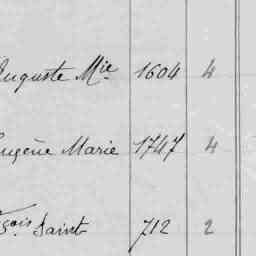 Auguste Mie 1604 4
Eugène Marie 1747 4
Fçois Saint 712 2